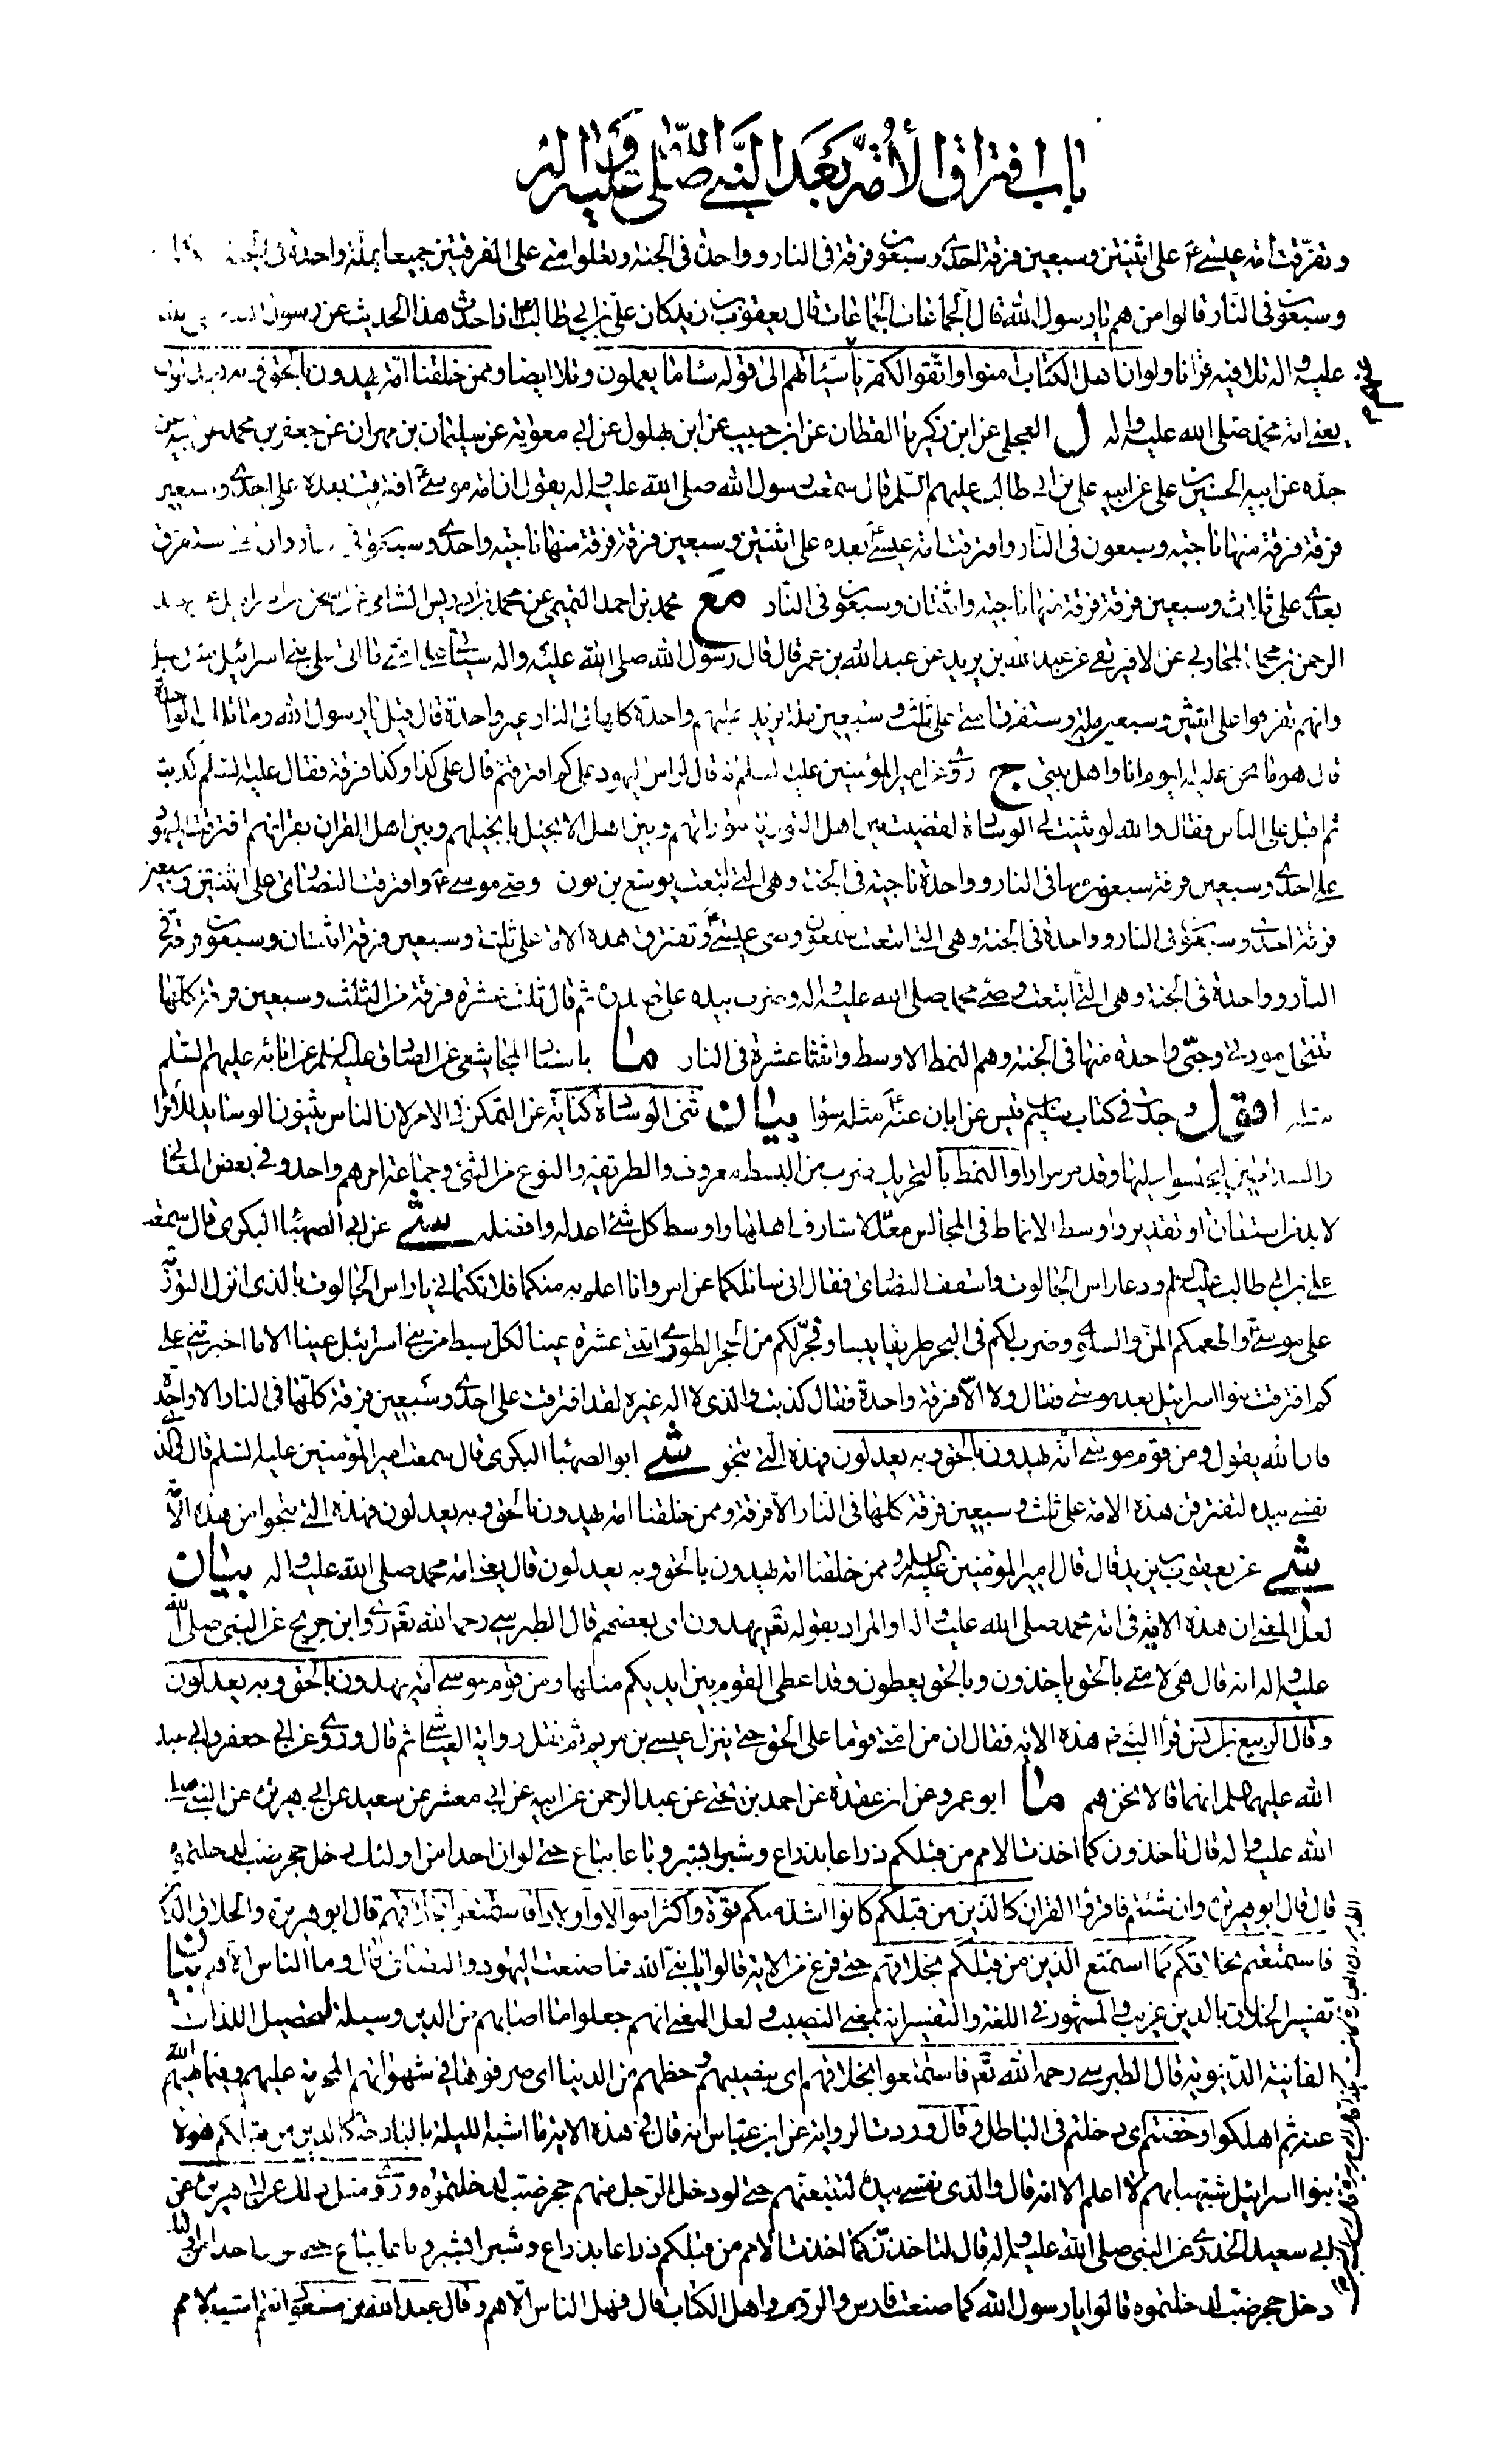 باب افتراق الأمة بعد النبي صلى الله عليه واله
وتفرقت امة عيسى ع على اثنتين وسبعين فرقة احدى وسبعون فرقة فى النار وواحدة فى الجنة وتعلوا متى على الفرقتين جميعا بملة واحدة فى الجنة
وسبعون فى النار قالوا من هم يا رسول الله قال الجماعات الجماعات قال يعقوب بن زيد كان على بن ابى طالب اذا حدث هذا الحديث عن رسول
عليه واله تلا فيه قرانا ولو ان اهل الكتاب امنوا واتقوا لكفرنا سيئاتهم الى قوله ساء ما يعملون وتلا ايضا وممن خلقنا امة يهدون بالحق
يعنى امة محمد صلى الله عليه واله ل العجلى عن ابن زكريا القطان عن ابن حبيب عن ابن بهلول عن ابى معوية عن سليمان بن مهران عن جعفر بن محمد عن ابيه عن
جده عن ابيه الحسين بن على عن ابيه على بن ابى طالب عليهم السلم قال سمعت رسول الله صلى الله عليه واله يقول ان امة موسى ع افترقت بعده على احدى وسبعين
فرقة فرقة منها ناجية وسبعون فى النار وافترقت امة عيسى ع بعده على اثنتين وسبعين فرقة فرقة منها ناجية واحدى وسبعون فى النار وان امتى ستفرق
بعدى على ثلاث وسبعين فرقة فرقة منها ناجية واثنتان وسبعون فى النار مع محمد بن احمد التميمى عن محمد بن ادريس الشامى
الرحمن بن محمد المحاربى عن الافريقى عن عبد الله بن يزيد عن عبد الله بن عمر قال قال رسول الله صلى الله عليه واله سياتى على امتى ما اتى على بنى اسرائيل مثل بمثل
وانهم تفرقوا على اثنتين وسبعين ملة وستفرق امتى على ثلث وسبعين ملة تزيد عليهم واحدة كلها فى النار غير واحدة قال قيل يا رسول الله وما تلك الواحدة
قال هو ما نحن عليه اليوم انا واهل بيتى ج روى عن امير المؤمنين عليه السلم انه قال لراس اليهود على كم افترقتم قال على كذا وكذا فرقة فقال عليه السلم كذبت
ثم اقبل على الناس فقال والله لو ثنيت لى الوسادة لقضيت بين اهل التورية بتوراتهم وبين اهل الانجيل بانجيلهم وبين اهل القران بقرانهم افترقت اليهود
على احدى وسبعين فرقة سبعون منها فى النار وواحدة ناجية فى الجنة وهى التى اتبعت يوشع بن نون وصى موسى ع وافترقت النصارى على اثنتين وسبعين
فرقة احدى وسبعون فى النار وواحدة فى الجنة وهى التى اتبعت شمعون وصى عيسى ع وتفترق هذه الامة على ثلث وسبعين فرقة اثنتان وسبعون فرقة فى
النار وواحدة فى الجنة وهى التى اتبعت وصى محمد صلى الله عليه واله وضرب بيده على صدره ثم قال ثلث عشرة فرقة من الثلث وسبعين فرقة كلها
تنتحل مودتى وحبى واحدة منها فى الجنة وهم النمط الاوسط واثنتا عشرة فى النار ما باسناد المجاشعى عن الصادق عليه السلم عن ابائه عليهم السلم
مثله اقول وجدت فى كتاب سليم بن قيس عن ابان عنه مثله سواء بيان ثنى الوسادة كناية عن التمكن فى الامر لان الناس يثنون الوسايد للامراء
والسلاطين ليجلسوا عليها وقد مر مرارا والنمط بالتحريك ضرب من البسط معروف والطريقة والنوع من الشئ وجماعة امرهم واحد وفى بعض المعانى
لا بد من استعارة او تقدير واوسط الانماط فى المجالس معد لاشارف اهلها واوسط كل شئ اعدله وافضله شى عن ابى الصهباء البكرى قال سمعت
على بن ابى طالب عليه السلم ودعا راس الجالوت واسقف النصارى فقال انى سائلكما عن امر وانا اعلم به منكما فلا تكتمانى يا راس الجالوت بالذى انزل التورية
على موسى ع واطعمكم المن والسلوى وضرب لكم فى البحر طريقا يبسا وفجر لكم من الحجر الطورى اثنتى عشرة عينا لكل سبط من بنى اسرائيل عينا الا ما اخبرتنى على
كم افترقت بنوا اسرائيل بعد موسى فقال ولا الا فرقة واحدة فقال كذبت والذى لا اله غيره لقد افترقت على احدى وسبعين فرقة كلها فى النار الا واحدة
فان الله يقول ومن قوم موسى امة يهدون بالحق وبه يعدلون فهذه التى تنجو شى ابو الصهباء البكرى قال سمعت امير المؤمنين عليه السلم قال والذى
نفسى بيده لتفترقن هذه الامة على ثلث وسبعين فرقة كلها فى النار الا فرقة وممن خلقنا امة يهدون بالحق وبه يعدلون فهذه التى تنجوا من هذه الامة
شى عن يعقوب بن يزيد قال قال امير المؤمنين عليه السلم وممن خلقنا امة يهدون بالحق وبه يعدلون قال يعنى امة محمد صلى الله عليه واله بيان
لعل المعنى ان هذه الاية فى امة محمد صلى الله عليه واله او المراد بقوله تع يهدون اى بعضهم قال الطبرسى رحمه الله تع روى ابن جريج عن النبى صلى الله
عليه واله انه قال هى لامتى بالحق ياخذون وبالحق يعطون وقد اعطى القوم بين ايديكم مثلها ومن قوم موسى امة يهدون بالحق وبه يعدلون
وقال الربيع بن انس قرأ النبى ص هذه الاية فقال ان من امتى قوما على الحق حتى ينزل عيسى بن مريم ثم نقل رواية العياشى ثم قال وروى عن ابى جعفر وابى عبد
الله عليهما السلم انهما قالا نحن هم ما ابو عمرو عن ابن عقدة عن احمد بن يحيى عن عبد الرحمن عن ابيه عن ابى معشر عن سعيد عن ابى هريرة عن النبى صلى
الله عليه واله قال تاخذون كما اخذت الامم من قبلكم ذراعا بذراع وشبرا بشبر وباعا بباع حتى لو ان احدا من اولئك دخل جحر ضب لدخلتموه
قال قال ابو هريرة وان شئتم فاقرؤا القران كالذين من قبلكم كانوا اشد منكم قوة واكثر اموالا واولادا فاستمتعوا بخلاقهم قال ابو هريرة والخلاق الدين
فاستمتعتم بخلاقكم كما استمتع الذين من قبلكم بخلاقهم حتى فرغ من الاية قالوا يا نبى الله فما صنعت اليهود والنصارى قال وما الناس الا هم بيان
تفسير الخلاق بالدين غريب والمشهور فى اللغة والتفسير انه بمعنى النصيب ولعل المعنى انهم جعلوا ما اصابهم من الدين وسيلة لتحصيل اللذات
الفانية الدنيوية قال الطبرسى رحمه الله تع فاستمتعوا بخلاقهم اى بنصيبهم وحظهم من الدنيا اى صرفوها فى شهواتهم المحرمة عليهم وفيما نهيهم الله
عنه ثم اهلكوا وخضتم اى دخلتم فى الباطل وقال وردت الرواية عن ابن عباس انه قال فى هذه الاية ما اشبه الليلة بالبارحة كالذين من قبلكم هؤلاء
بنوا اسرائيل شبهنا بهم لا اعلم الا انه قال والذى نفسى بيده لتتبعنهم حتى لو دخل الرجل منهم جحر ضب لدخلتموه وروى مثل ذلك عن ابى هريرة عن
ابى سعيد الخدرى عن النبى صلى الله عليه واله قال لتاخذن كما اخذت الامم من قبلكم ذراعا بذراع وشبرا بشبر وباعا بباع حتى لو ان احدا من اولئك
دخل جحر ضب لدخلتموه قالوا يا رسول الله كما صنعت فارس والروم واهل الكتاب قال فهل الناس الا هم وقال عبد الله بن مسعود انتم اشبه الامم